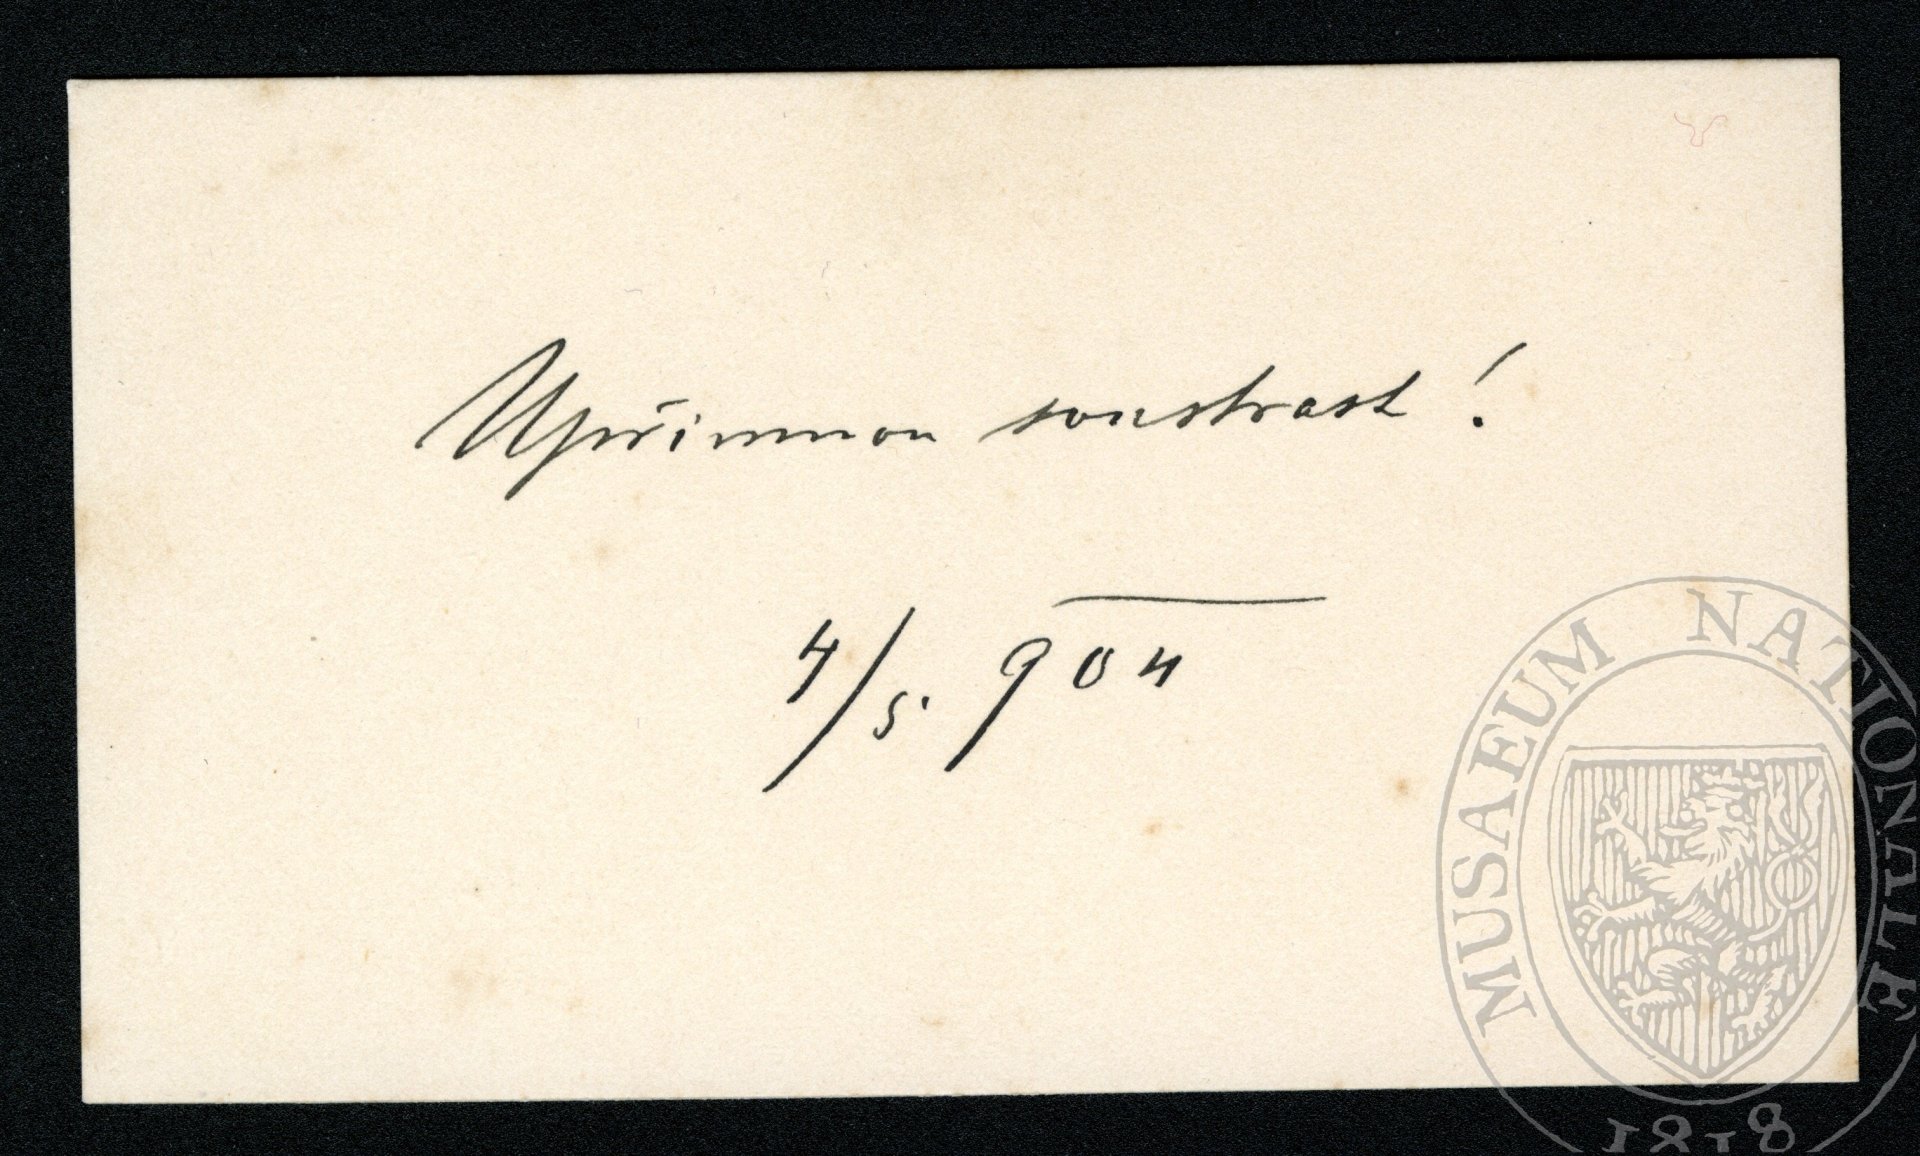 Upřímnou soustrast!
4/5. 904
MUSAEUM NATIONALE
1818